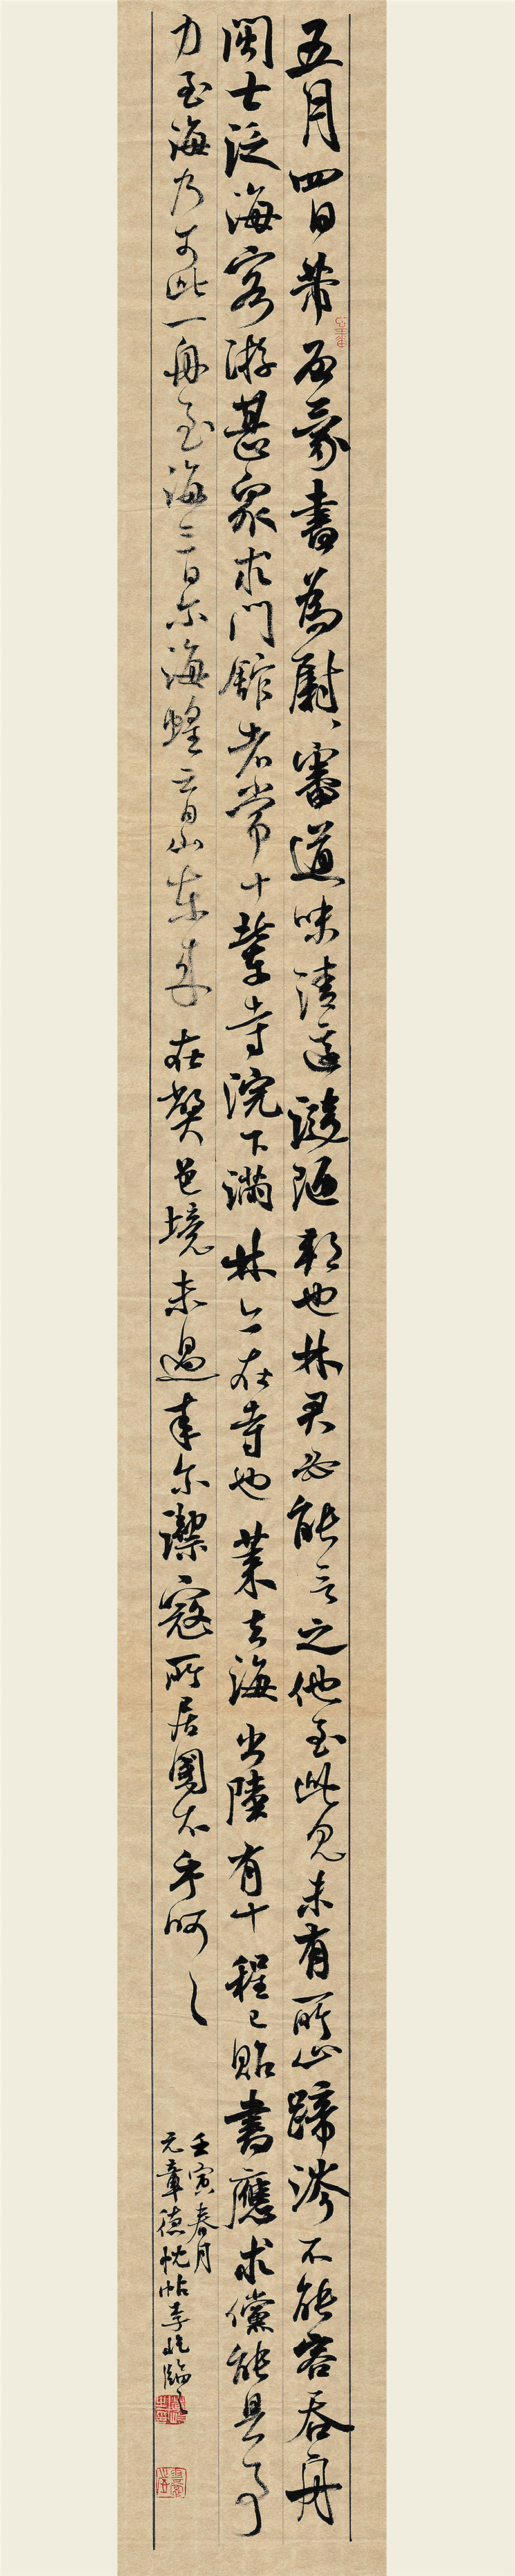 五月四日芾启蒙书为慰审道味清适涤陋邦也林君必能言之他至此见未有所止蹄涔不能容吞舟
闽士泛海客游甚众求门馆者常十辈寺院下满林亦在寺也莱去海出陆有十程已贴书应求倘能具事
力至海乃可此一舟至海三日尔海蝗云自山东来在弊邑境未过来尔御寇所居国不乎呵呵
壬寅春月
元章德忱帖李屹临